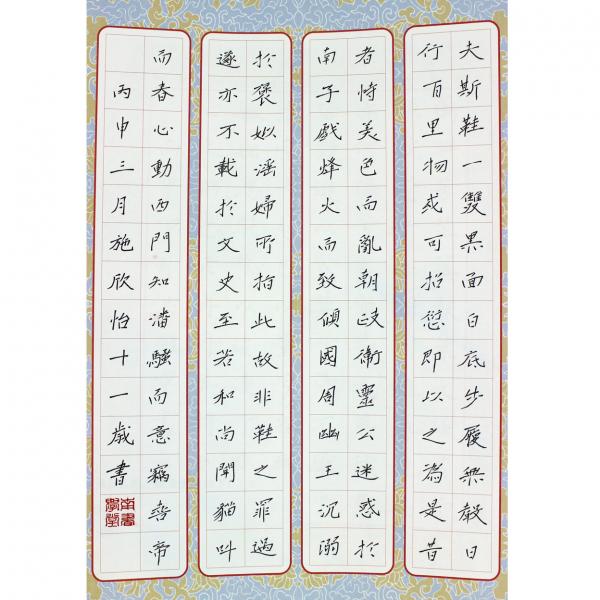 夫斯鞋一雙黑面白底步履無教日
行百里物或可招愆即以之為是昔
者恃美色而亂朝政衛靈公迷惑於
南子戲烽火而致傾國周幽王沉溺
於褒姒滛婦所指此故非鞋之罪過
遂亦不載於文史至若和尚聞貓叫
而春心動西門知潘騷而意竊喜帝
丙申三月施欣怡十一歲書